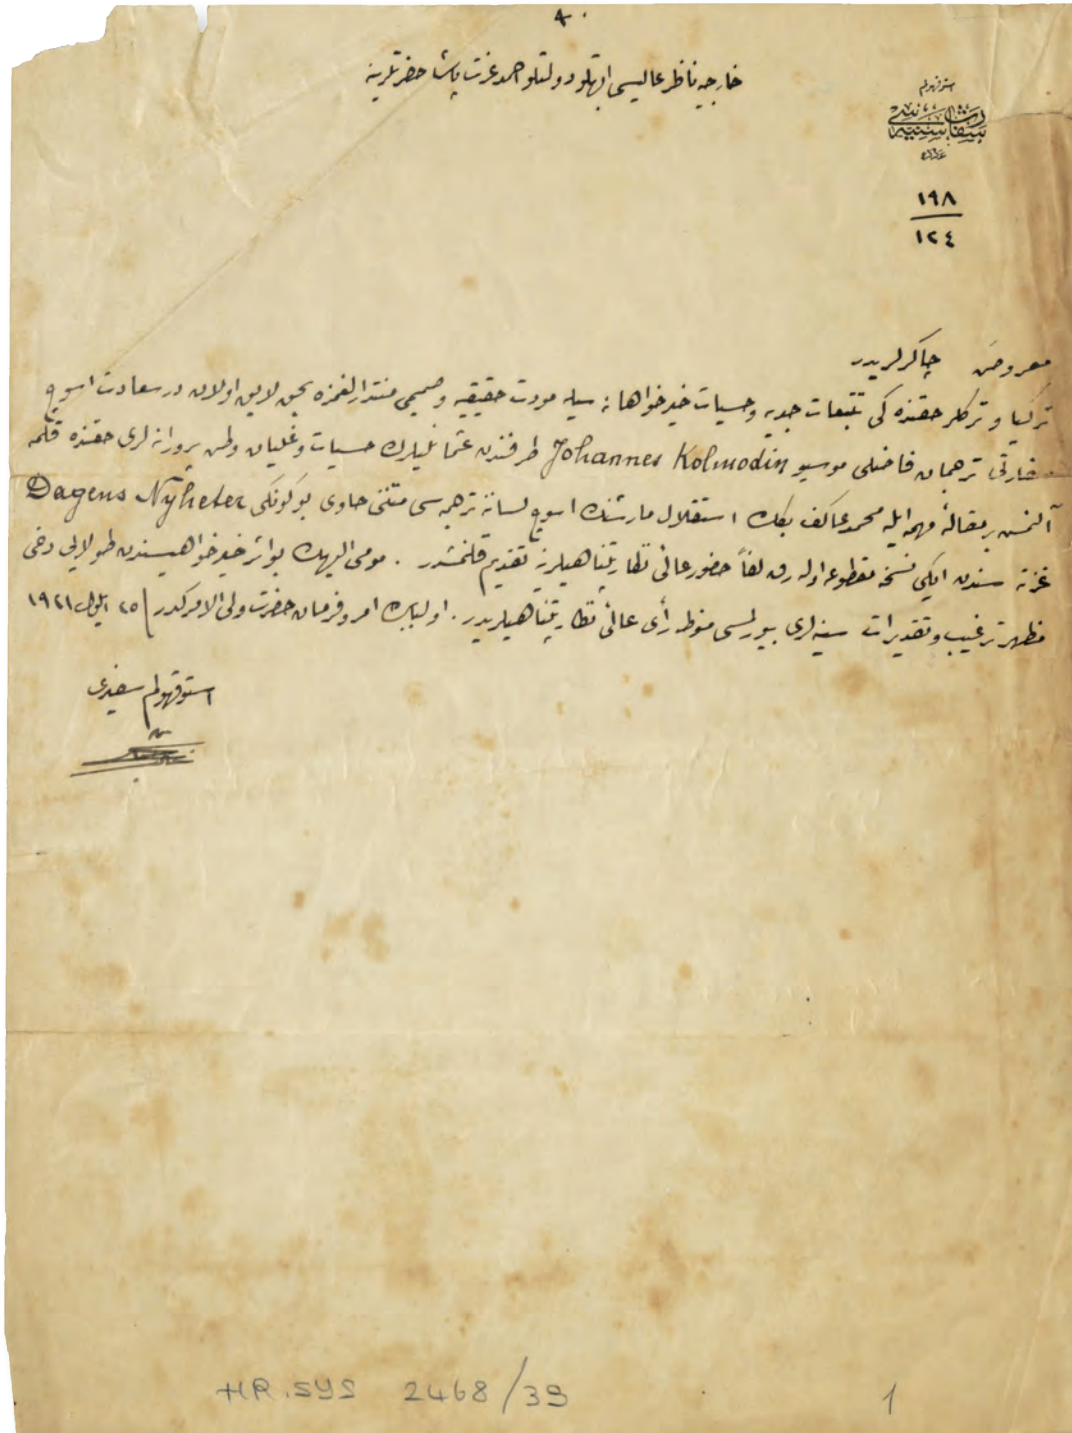 خارجیه ناظر عالیسی ابهتلو دولتلو احمد عزت پاشا حضرتلرینه
استوقهولم
سفارت سنیه سی
عدد
١٩٨
١٢٤
معروض چاکرلریدر
ترکیا و ترکلر حقنده کی تتبعات جدیه و حسیات خیرخواهانه سیله مودت حقیقیه و صمیمی منتدارلغمزه بحق لایق اولان درسعادت اسوج
سفارتی ترجمان فاضلی موسیو Johannes Kolmodin طرفندن عثمانلیلرك حسیات و غلیان وطن پرورانه لری حقنده قلمه
آلنمش بر مقالهٔ مهمه ایله محمد عاکف بكك استقلال مارشنك اسوج لساننه ترجمه سی متننی حاوی بوکونکی Dagens Nyheter
غزته سندن ایکی نسخه مقطوعه اوله رق لفاً حضور عالئ نظارتپناهیلرینه تقدیم قلنمشدر . مومی الیهك بو اثر خیرخواهیسندن طولایی دخی
مظهر ترغیب و تقدیرات سنیه لری بیورلمسی منوط رأی عالئ نظارتپناهیلریدر . اولبابده امر و فرمان حضرت ولی الامرکدر ٢٥ ایلول ١٩٢١
استوقهولم سفیری
HR.SYS 2468/39
1